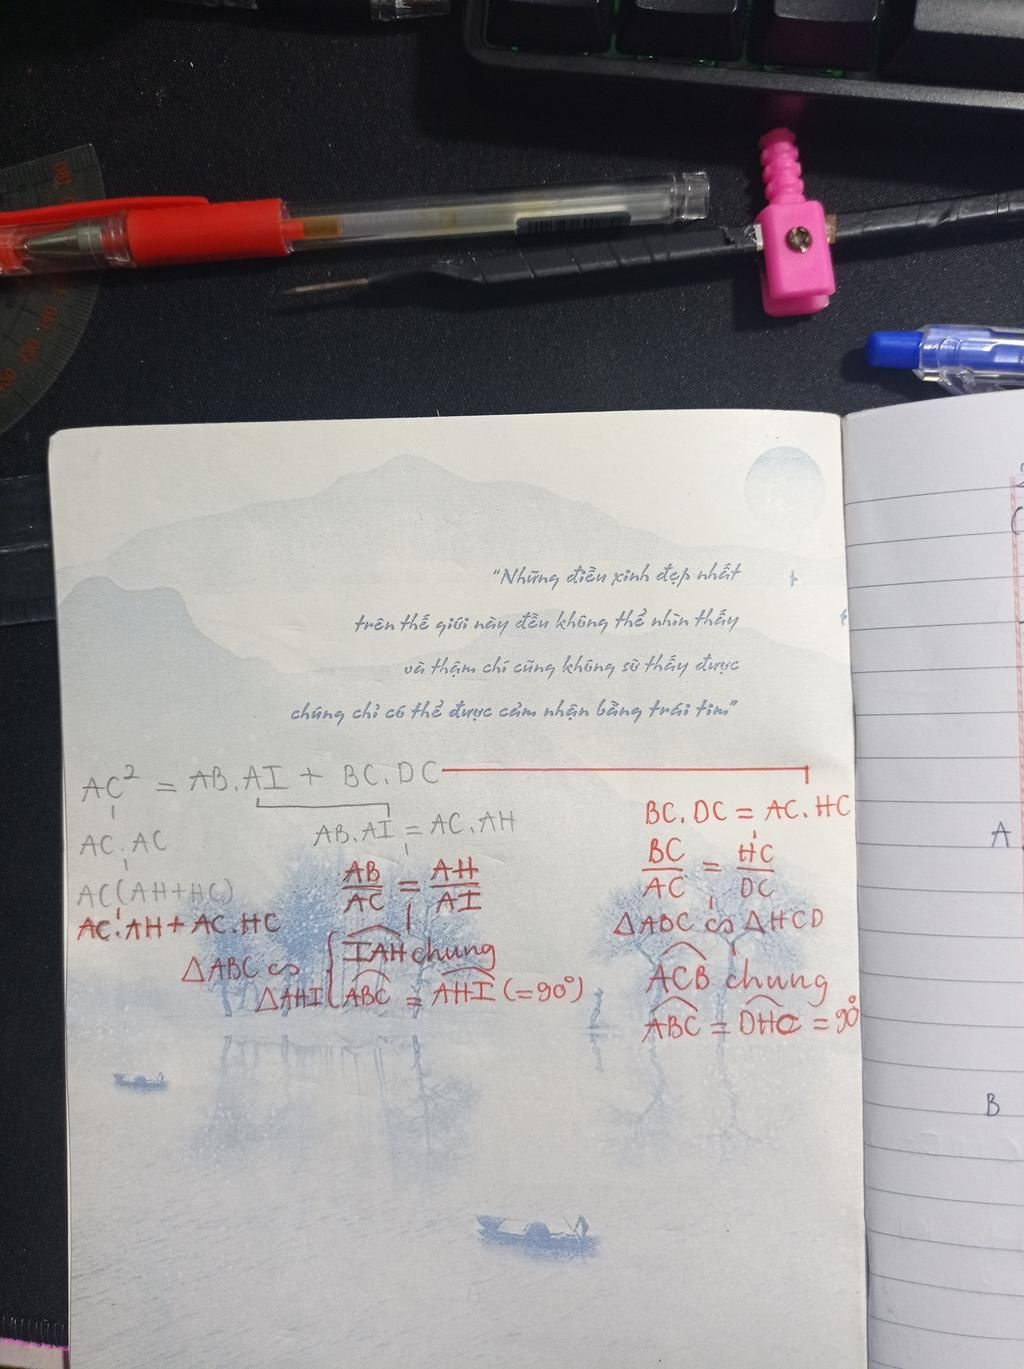 "Những điều xinh đẹp nhất
trên thế giới này đều không thể nhìn thấy
và thậm chí cũng không sờ thấy được
chúng chỉ có thể được cảm nhận bằng trái tim"
AC² = AB.AI + BC.DC
AC.AC
AC(AH+HC)
AC.AH + AC.HC
AB.AI = AC.AH
AB/AC = AH/AI
ΔABC ∽ ΔAHI
IAH chung
ABC = AHI (=90°)
BC.DC = AC.HC
BC/AC = HC/DC
ΔABC ∽ ΔHCD
ACB chung
ABC = DHC = 90°
A
B